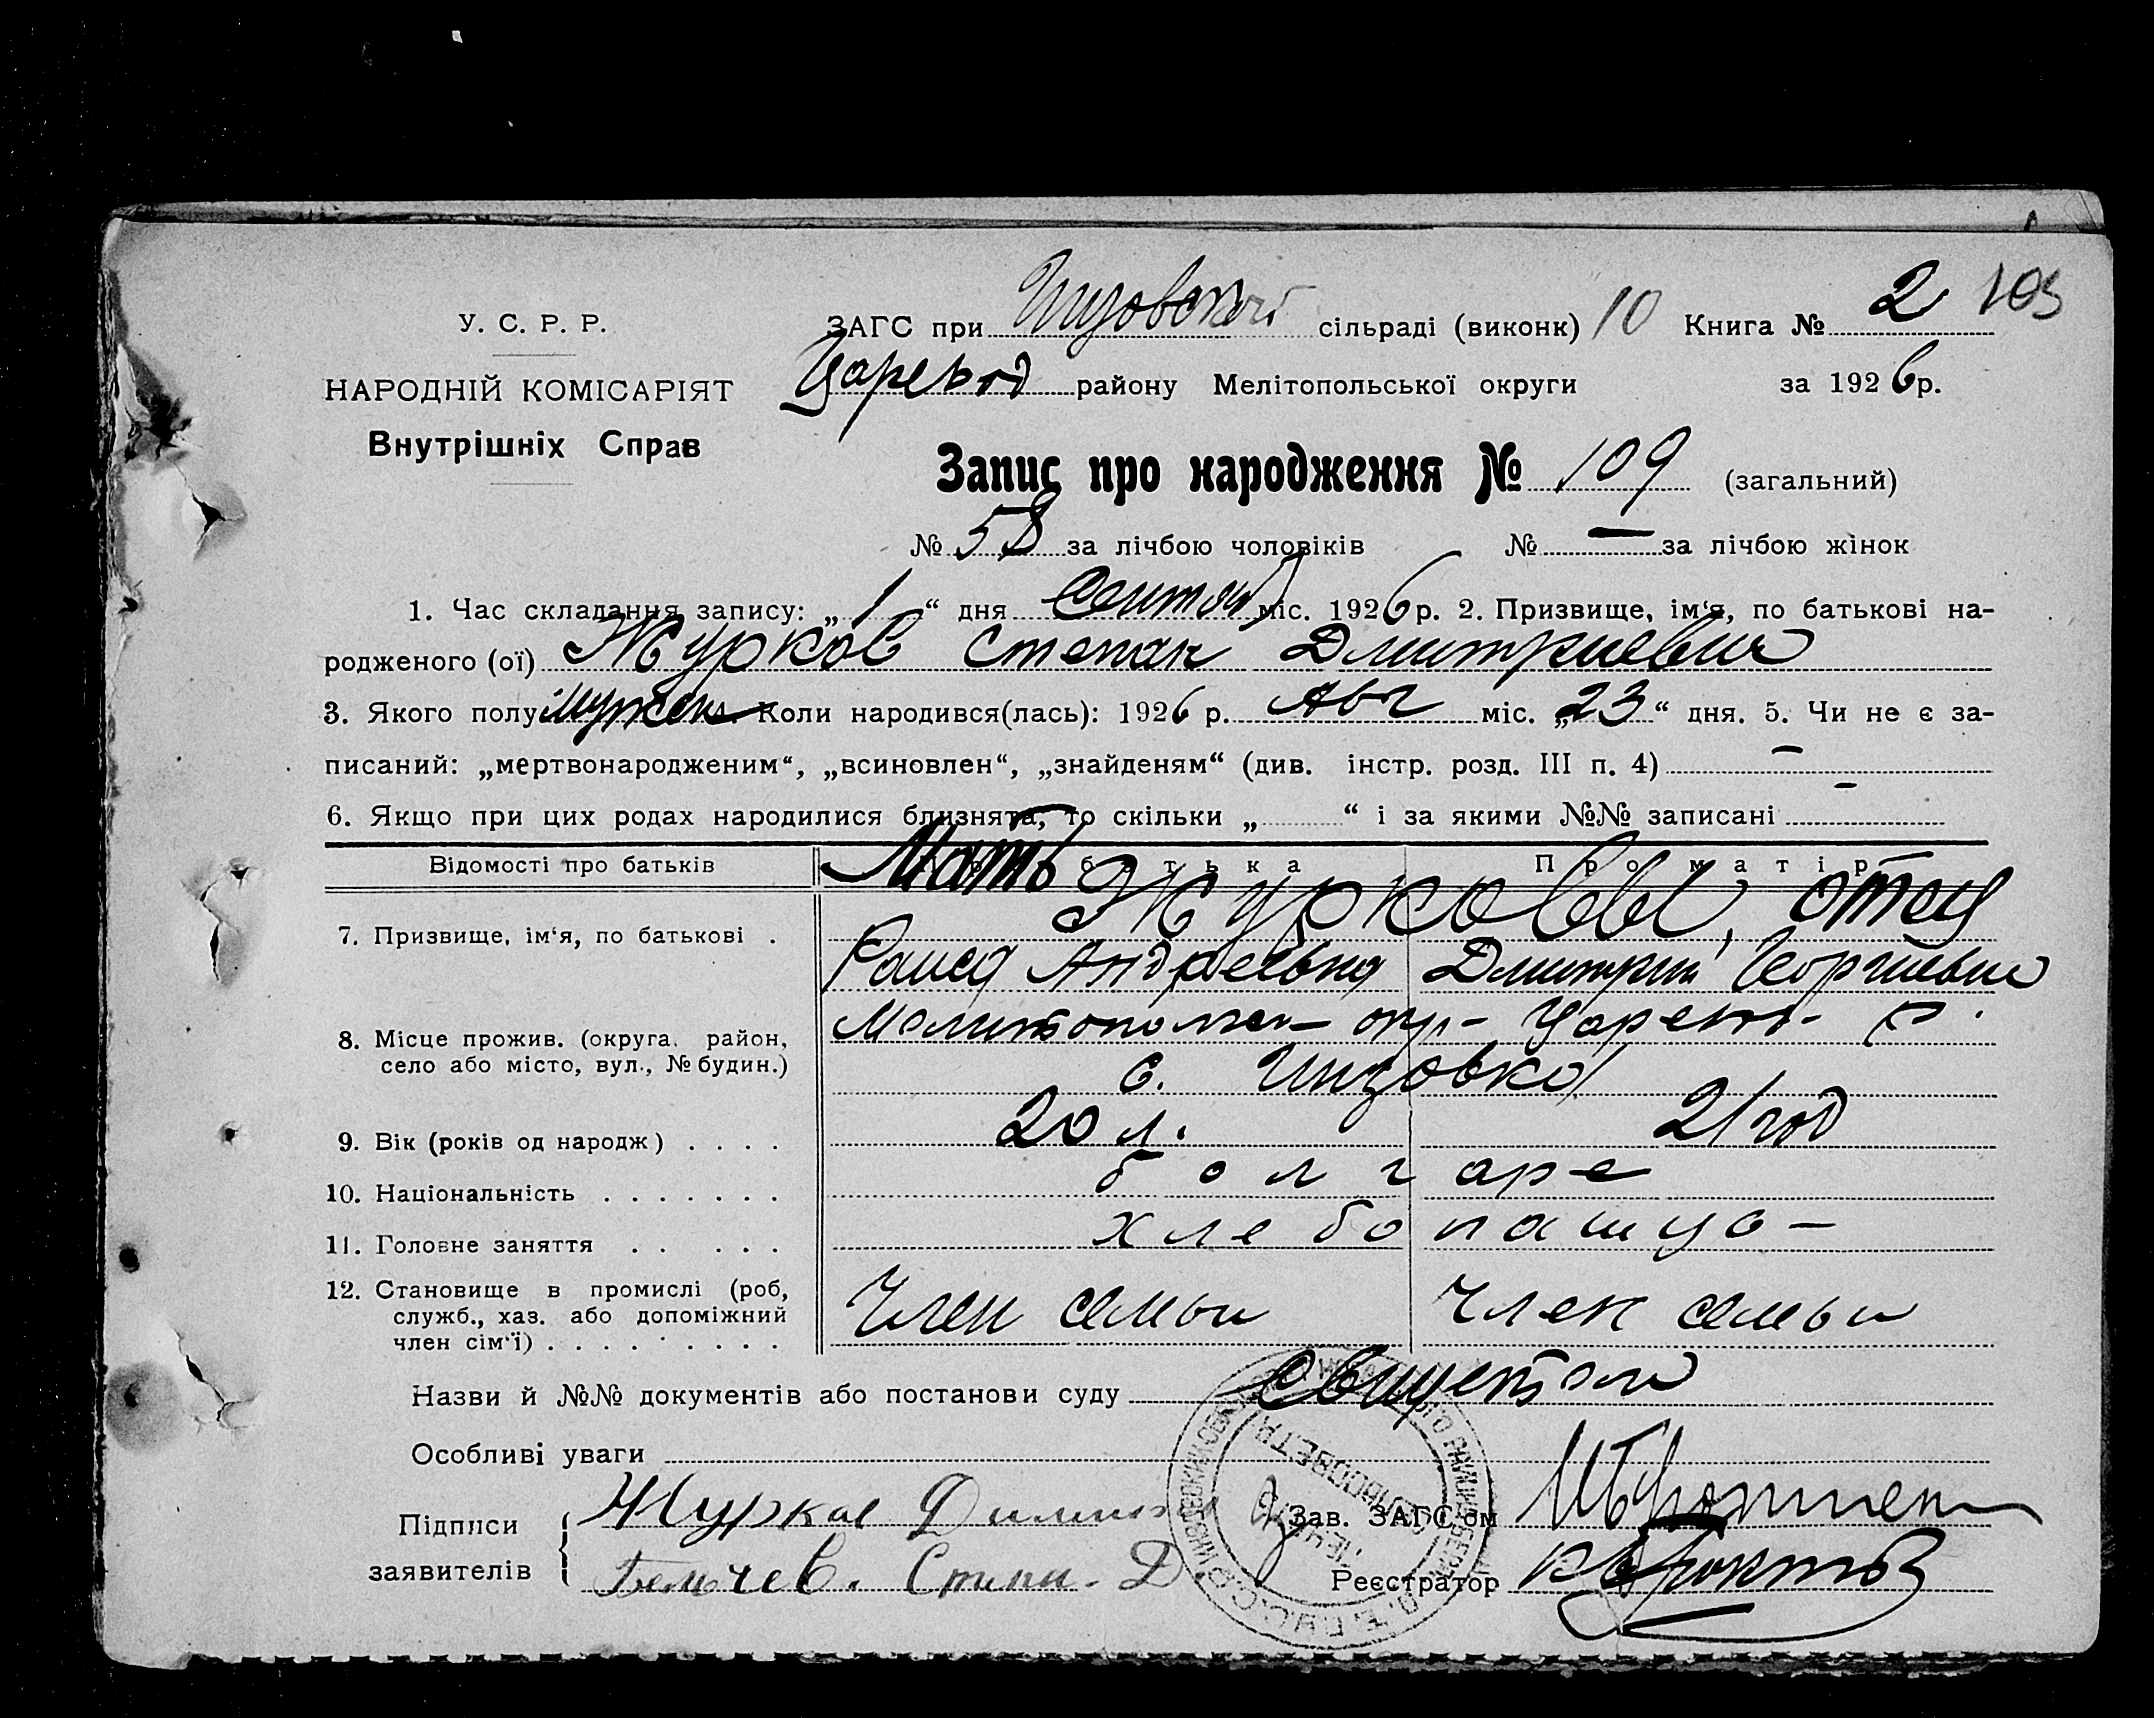 103
У. С. Р. Р.
НАРОДНІЙ КОМІСАРІЯТ
Внутрішніх Справ
ЗАГС при Инзовской сільраді (виконк) 10 Книга № 2
Царевод району Мелітопольської округи за 1926 р.
Запис про народження № 109 (загальний)
№ 58 за лічбою чоловіків № — за лічбою жінок
1. Час складання запису: „1“ дня Сентяб міс. 1926 р. 2. Призвище, ім‘я, по батькові на-
родженого (ої) Журков Степан Дмитриевич
3. Якого полу мужск. Коли народився(лась): 1926 р. Авг міс. „23“ дня. 5. Чи не є за-
писаний: „мертвонародженим“, „всиновлен“, „знайденям“ (див. інстр. розд. III п. 4) —
6. Якщо при цих родах народилися близнята, то скільки „ “ і за якими №№ записані —
Відомості про батьків Мать батька Про матір
7. Призвище, ім‘я, по батькові . Журковы, отец
Раиса Андреевна Дмитрий Георгиевич
8. Місце прожив. (округа, район, Мелитопольск- окр- Царев- р.
село або місто, вул., № будин.) с. Инзовка
9. Вік (років од народж) . . . . 20 л. 21 год
10. Національність . . . . . . . болгаре
11. Головне заняття . . . . . хлебопашцо-
12. Становище в промислі (роб, Член семьи Член семьи
служб., хаз. або допоміжний
член сім‘ї) . . . . . . . . .
Назви й №№ документів або постанови суду
Особливі уваги
Підписи Журков Зав. ЗАГС‘ом
заявителів Степ. Д. Реєстратор
СЕЛЬСОВЕТА